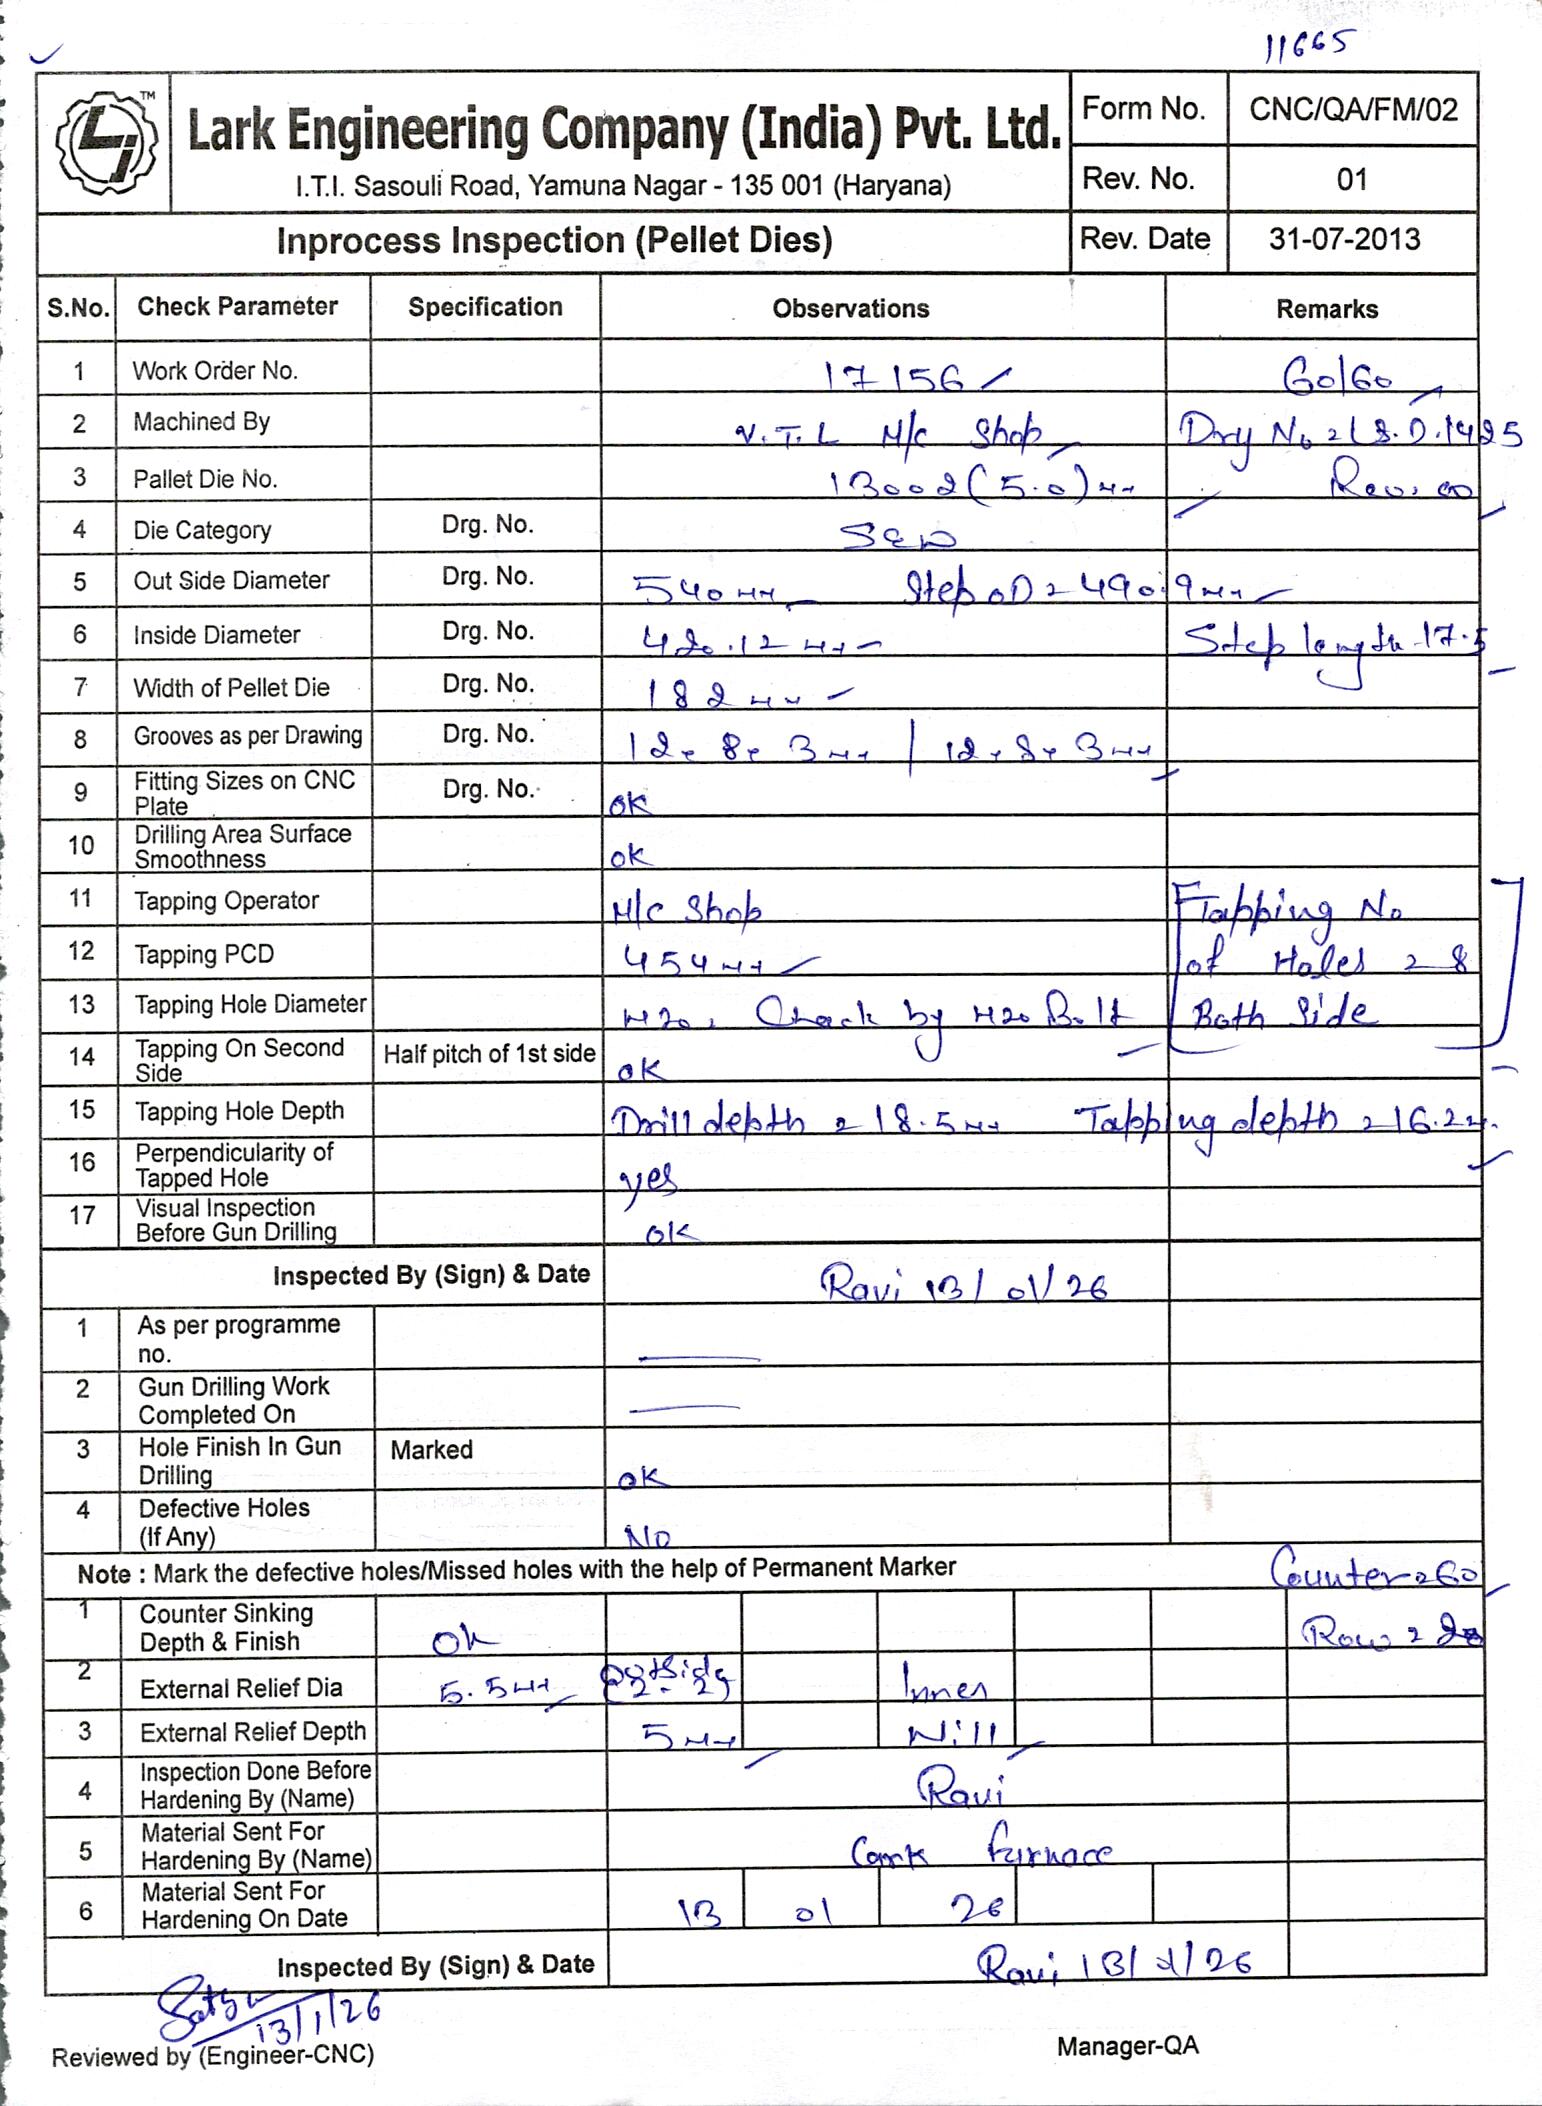 11665
TM
Lark Engineering Company (India) Pvt. Ltd.
I.T.I. Sasouli Road, Yamuna Nagar - 135 001 (Haryana)
Form No. CNC/QA/FM/02
Rev. No. 01
Inprocess Inspection (Pellet Dies)
Rev. Date 31-07-2013
S.No. Check Parameter Specification Observations Remarks
1 Work Order No. 17156 60/60
2 Machined By V.T.L M/c Shop Drg No = L.S.D.1425
3 Pallet Die No. 13002 (5.0) mm Rev. 00
4 Die Category Drg. No.
5 Out Side Diameter Drg. No. 540 mm Step OD = 490.9 mm
6 Inside Diameter Drg. No. 420.12 mm Step length - 17.5
7 Width of Pellet Die Drg. No. 182 mm
8 Grooves as per Drawing Drg. No. 12 × 8 × 3 mm / 12 × 8 × 3 mm
9 Fitting Sizes on CNC Plate Drg. No. ok
10 Drilling Area Surface Smoothness ok
11 Tapping Operator M/c Shop Tapping No
12 Tapping PCD 454 mm of Holes = 8
13 Tapping Hole Diameter M20, Check by M20 Bolt Both Side
14 Tapping On Second Side Half pitch of 1st side ok
15 Tapping Hole Depth Drill depth = 18.5 mm Tapping depth = 16.2
16 Perpendicularity of Tapped Hole yes
17 Visual Inspection Before Gun Drilling ok
Inspected By (Sign) & Date Ravi 13/01/26
1 As per programme no.
2 Gun Drilling Work Completed On
3 Hole Finish In Gun Drilling Marked ok
4 Defective Holes (If Any) No
Note : Mark the defective holes/Missed holes with the help of Permanent Marker Counter = 60
1 Counter Sinking Depth & Finish ok Row = 28
2 External Relief Dia 5.5 mm Outside Inner
3 External Relief Depth 5 mm Nill
4 Inspection Done Before Hardening By (Name) Ravi
5 Material Sent For Hardening By (Name) furnace
6 Material Sent For Hardening On Date 13 01 26
Inspected By (Sign) & Date Ravi 13/1/26
13/1/26
Reviewed by (Engineer-CNC) Manager-QA